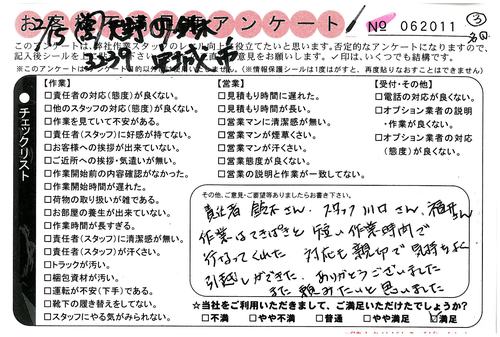 お客様 アンケート
№ 062011
③
宮城 市
このアンケートは、弊社作業スタッフのレベル向上に役立てたいと思います。否定的なアンケートになりますので、
記入後シールを 直な意見をお願いします。✓印は、いくつでも結構です。
※このアンケートは 目的以外 いたしません。(※情報保護シールは1度がすと、再度貼りなおすことはできません)
チェックリスト
【作業】
□責任者の対応(態度)が良くない。
□他のスタッフの対応(態度)が良くない。
□作業を見ていて不安がある。
□責任者(スタッフ)に好感が持てない。
□お客様への挨拶が出来ていない。
□ご近所への挨拶・気遣いが無い。
□作業開始前の内容確認がなかった。
□作業開始時間が遅れた。
□荷物の取り扱いが雑である。
□お部屋の養生が出来ていない。
□作業時間が長すぎる。
□責任者(スタッフ)に清潔感が無い。
□責任者(スタッフ)が汗くさい。
□トラックが汚い。
□梱包資材が汚い。
□運転が不安(下手)である。
□靴下の履き替えをしてない。
□スタッフにやる気がみられない。
【営業】
□見積もり時間に遅れた。
□見積もり時間が長い。
□営業マンに清潔感が無い。
□営業マンが煙草くさい。
□営業マンが汗くさい。
□営業態度が良くない。
□営業の説明と作業が一致してない。
【受付・その他】
□電話の対応が良くない。
□オプション業者の説明
・作業が良くない。
□オプション業者の対応
(態度)が良くない。
その他、ご意見・ご要望等ありましたらお書き下さい。
責任者 鈴木さん、スタッフ 川口さん、福井さん
作業はてきぱきと 短い作業時間で
行なってくれた 対応も親切で気持ちよく
引越しができた、ありがとうございました
また 頼みたいと思いました
☆当社をご利用いただきまして、ご満足いただけたでしょうか?
□不満 □やや不満 □普通 □やや満足 ☑満足